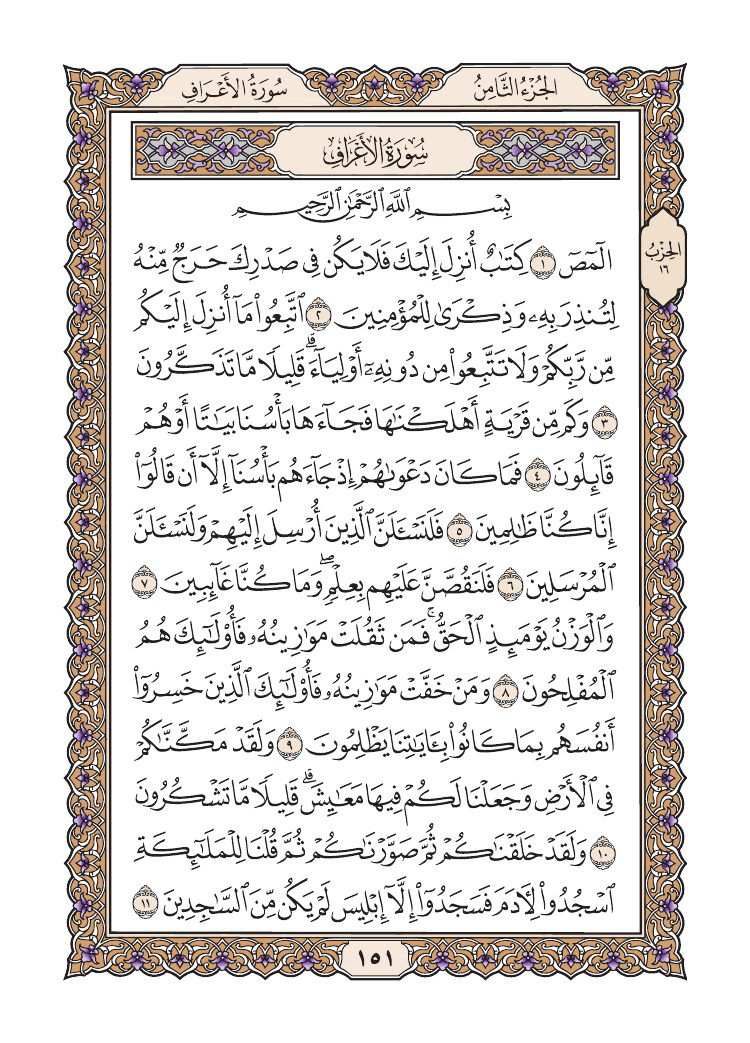 الجُزْءُ الثَّامِنُ
سُورَةُ الأَعْرَافِ
سُورَةُ الأَعْرَافِ
بِسْمِ ٱللَّهِ ٱلرَّحْمَٰنِ ٱلرَّحِيمِ
الحِزْبُ
١٦
الٓمٓصٓ ١ كِتَٰبٌ أُنزِلَ إِلَيْكَ فَلَا يَكُن فِى صَدْرِكَ حَرَجٌ مِّنْهُ
لِتُنذِرَ بِهِۦ وَذِكْرَىٰ لِلْمُؤْمِنِينَ ٢ ٱتَّبِعُوا۟ مَآ أُنزِلَ إِلَيْكُم
مِّن رَّبِّكُمْ وَلَا تَتَّبِعُوا۟ مِن دُونِهِۦٓ أَوْلِيَآءَ ۗ قَلِيلًا مَّا تَذَكَّرُونَ
٣ وَكَم مِّن قَرْيَةٍ أَهْلَكْنَٰهَا فَجَآءَهَا بَأْسُنَا بَيَٰتًا أَوْ هُمْ
قَآئِلُونَ ٤ فَمَا كَانَ دَعْوَىٰهُمْ إِذْ جَآءَهُم بَأْسُنَآ إِلَّآ أَن قَالُوٓا۟
إِنَّا كُنَّا ظَٰلِمِينَ ٥ فَلَنَسْـَٔلَنَّ ٱلَّذِينَ أُرْسِلَ إِلَيْهِمْ وَلَنَسْـَٔلَنَّ
ٱلْمُرْسَلِينَ ٦ فَلَنَقُصَّنَّ عَلَيْهِم بِعِلْمٍ ۖ وَمَا كُنَّا غَآئِبِينَ ٧
وَٱلْوَزْنُ يَوْمَئِذٍ ٱلْحَقُّ ۚ فَمَن ثَقُلَتْ مَوَٰزِينُهُۥ فَأُو۟لَٰٓئِكَ هُمُ
ٱلْمُفْلِحُونَ ٨ وَمَنْ خَفَّتْ مَوَٰزِينُهُۥ فَأُو۟لَٰٓئِكَ ٱلَّذِينَ خَسِرُوٓا۟
أَنفُسَهُم بِمَا كَانُوا۟ بِـَٔايَٰتِنَا يَظْلِمُونَ ٩ وَلَقَدْ مَكَّنَّٰكُمْ
فِى ٱلْأَرْضِ وَجَعَلْنَا لَكُمْ فِيهَا مَعَٰيِشَ ۗ قَلِيلًا مَّا تَشْكُرُونَ
١٠ وَلَقَدْ خَلَقْنَٰكُمْ ثُمَّ صَوَّرْنَٰكُمْ ثُمَّ قُلْنَا لِلْمَلَٰٓئِكَةِ
ٱسْجُدُوا۟ لِـَٔادَمَ فَسَجَدُوٓا۟ إِلَّآ إِبْلِيسَ لَمْ يَكُن مِّنَ ٱلسَّٰجِدِينَ ١١
١٥١